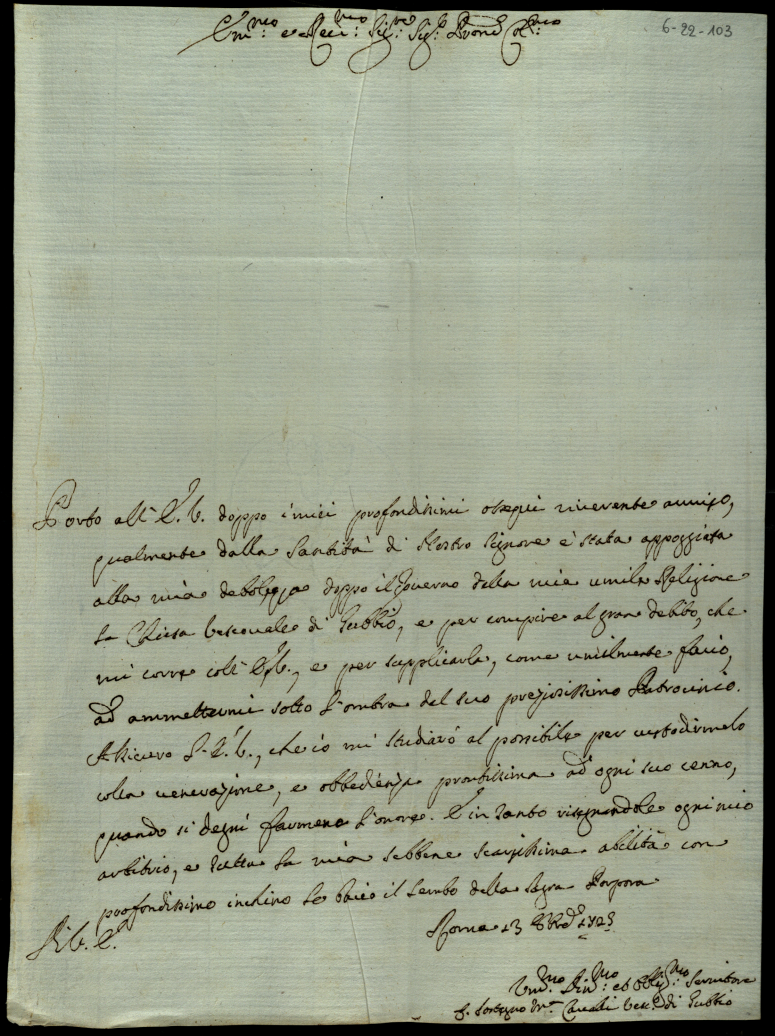 6-22-103
Em.mo e Rev.mo Sig.re Sig.r Pron Col.mo
Porto all' E. V. doppo i miei profondissimi ossequi riverente avviso,
qualmente dalla Santità di Nostro Signore è stata appoggiata
alla mia debbolezza doppo il Governo della mia umile Religione
la Chiesa Vescovale di Gubbio, e per compire al gran debito, che
mi corre coll' E. V., e per supplicarla, come umilmente faccio,
ad ammettermi sotto l'ombra del suo preziosissimo Patrocinio.
Assicuro l' E. V., che io mi studiarò al possibile per custodirmelo
colla venerazione, e obbedienza prontissima ad ogni suo cenno,
quando si degni farmene l'onore. E in tanto risegnandole ogni mio
arbitrio, e tutta la mia sebbene scarsissima abilità con
profondissimo inchino le bacio il lembo della Sagra Porpora
Roma 23 1725
Di V. E.
Um.mo Div.mo et Obblig.mo Servitore
f. Sostegno M.a Cavalli Vesc.o di Gubbio